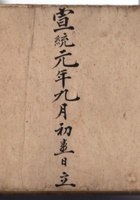 宣統元年九月初日立